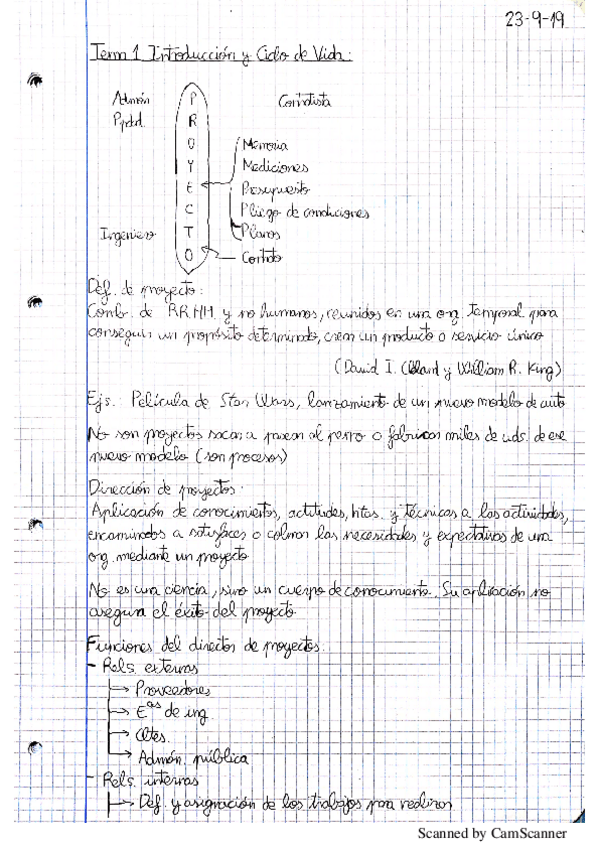 23-9-19
Tema 1 Introducción y Ciclo de Vida:
Admón Contratista
Ppdad.
PROYECTO
Memoria
Mediciones
Presupuesto
Pliego de condiciones
Planos
Ingeniero
Contrato
Def. de proyecto:
Comb. de RRHH y no humanos, reunidos en una org. temporal para
conseguir un propósito determinado, crean un producto o servicio único
(David I. Cleland y William R. King)
Ejs: Película de Star Wars, lanzamiento de un nuevo modelo de auto
No son proyectos sacar a pasear al perro o fabricar miles de uds. de ese
nuevo modelo (son procesos)
Dirección de proyectos:
Aplicación de conocimientos, actitudes, htas. y técnicas a las actividades,
encaminados a satisfacer o colmar las necesidades y expectativas de una
org. mediante un proyecto
No es una ciencia, sino un cuerpo de conocimiento. Su aplicación no
asegura el éxito del proyecto
Funciones del director de proyectos:
- Rels. externas
→ Proveedores
→ Eas de ing.
→ Cltes.
→ Admón. pública
- Rels. internas
→ Def. y asignación de los trabajos para realizar
Scanned by CamScanner